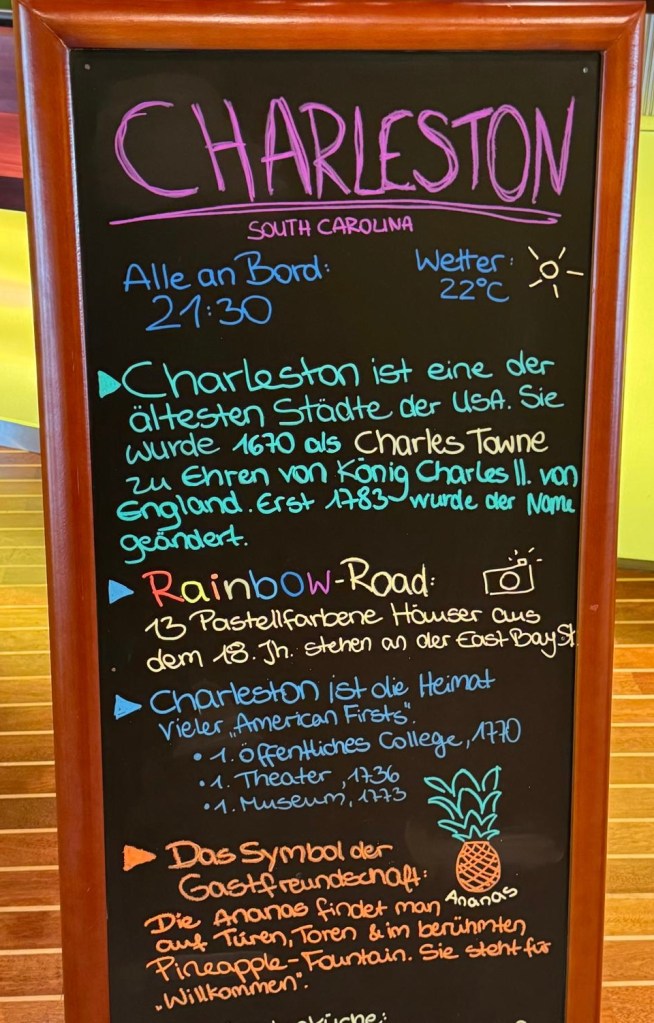 CHARLESTON
SOUTH CAROLINA
Alle an Bord:
21:30
Wetter:
22°C
Charleston ist eine der
ältesten Städte der USA. Sie
wurde 1670 als Charles Towne
zu Ehren von König Charles II. von
England. Erst 1783 wurde der Name
geändert.
Rainbow-Road:
13 Pastellfarbene Häuser aus
dem 18. Jh. stehen an der East Bay St.
Charleston ist die Heimat
vieler „American Firsts".
• 1. Öffentliches College, 1770
• 1. Theater, 1736
• 1. Museum, 1773
Das Symbol der
Gastfreundschaft:
Ananas
Die Ananas findet man
auf Türen, Toren & im berühmten
Pineapple-Fountain. Sie steht für
„Willkommen".